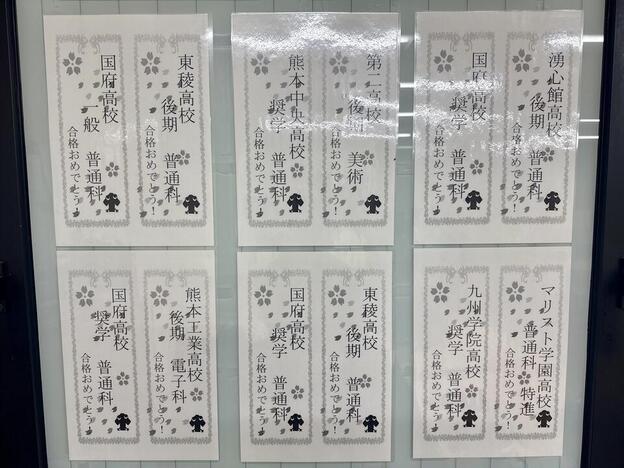 湧心館高校
後期 普通科
合格おめでとう!
国府高校
奨学 普通科
合格おめでとう!
第二高校
後期 美術
合格おめでとう!
熊本中央高校
奨学 普通科
合格おめでとう!
東稜高校
後期 普通科
合格おめでとう!
国府高校
一般 普通科
合格おめでとう!
マリスト学園高校
普通科 特進
合格おめでとう!
九州学院高校
奨学 普通科
合格おめでとう!
東稜高校
後期 普通科
合格おめでとう!
国府高校
奨学 普通科
合格おめでとう!
熊本工業高校
後期 電子科
合格おめでとう!
国府高校
奨学 普通科
合格おめでとう!